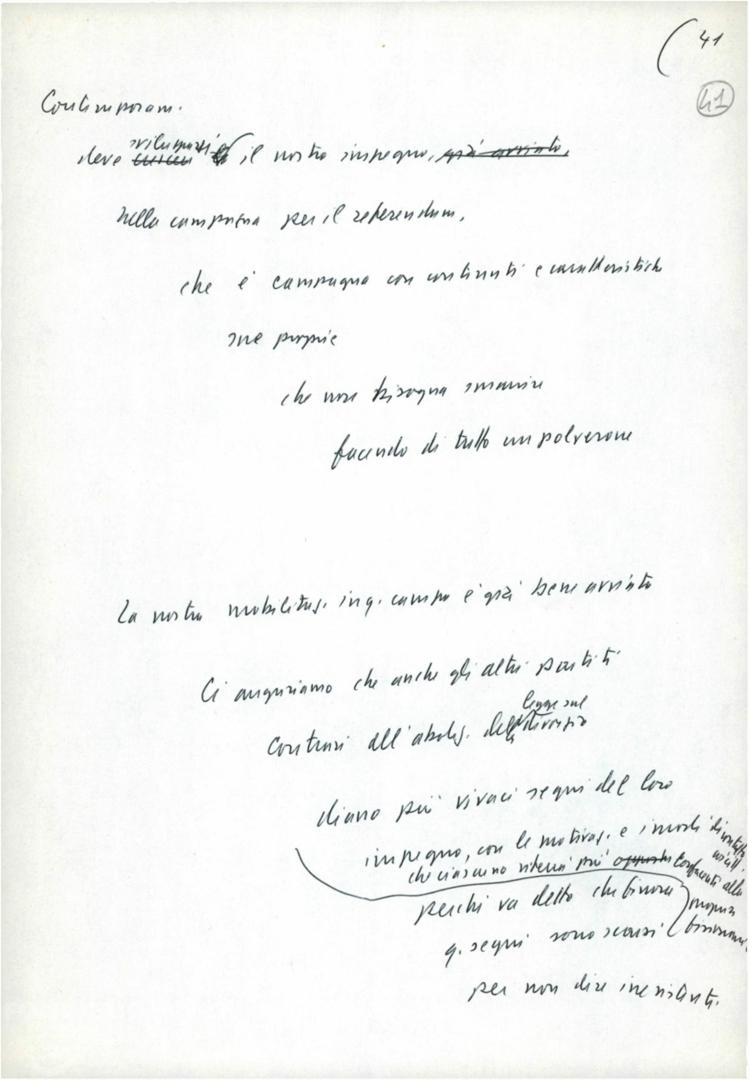 ( 41
41
Contemporan.
svilupparsi
deve il nostro impegno, già avviato,
nella campagna per il referendum,
che è campagna con contenuti e caratteristiche
sue proprie
che non bisogna smarrire
facendo di tutto un polverone
La nostra mobilitaz. in q. campo è già bene avviata
Ci auguriamo che anche gli altri partiti
legge sul
contrari all'aboliz. della divorzio
diano più vivaci segni del loro
impegno, con le motivaz. e i modi di
che ciascuno riterrà più opportuni confacenti alla
perché va detto che finora propria
q. segni sono scarsi
per non dire inesistenti.